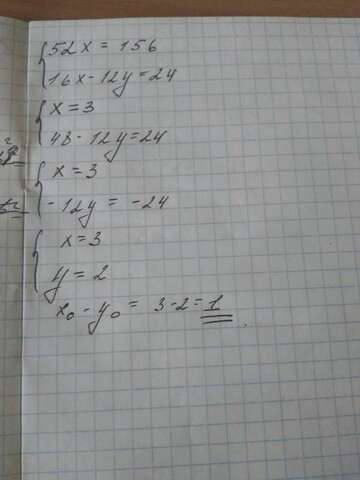 52x = 156
16x - 12y = 24
x = 3
48 - 12y = 24
x = 3
-12y = -24
x = 3
y = 2
x₀ - y₀ = 3 - 2 = 1